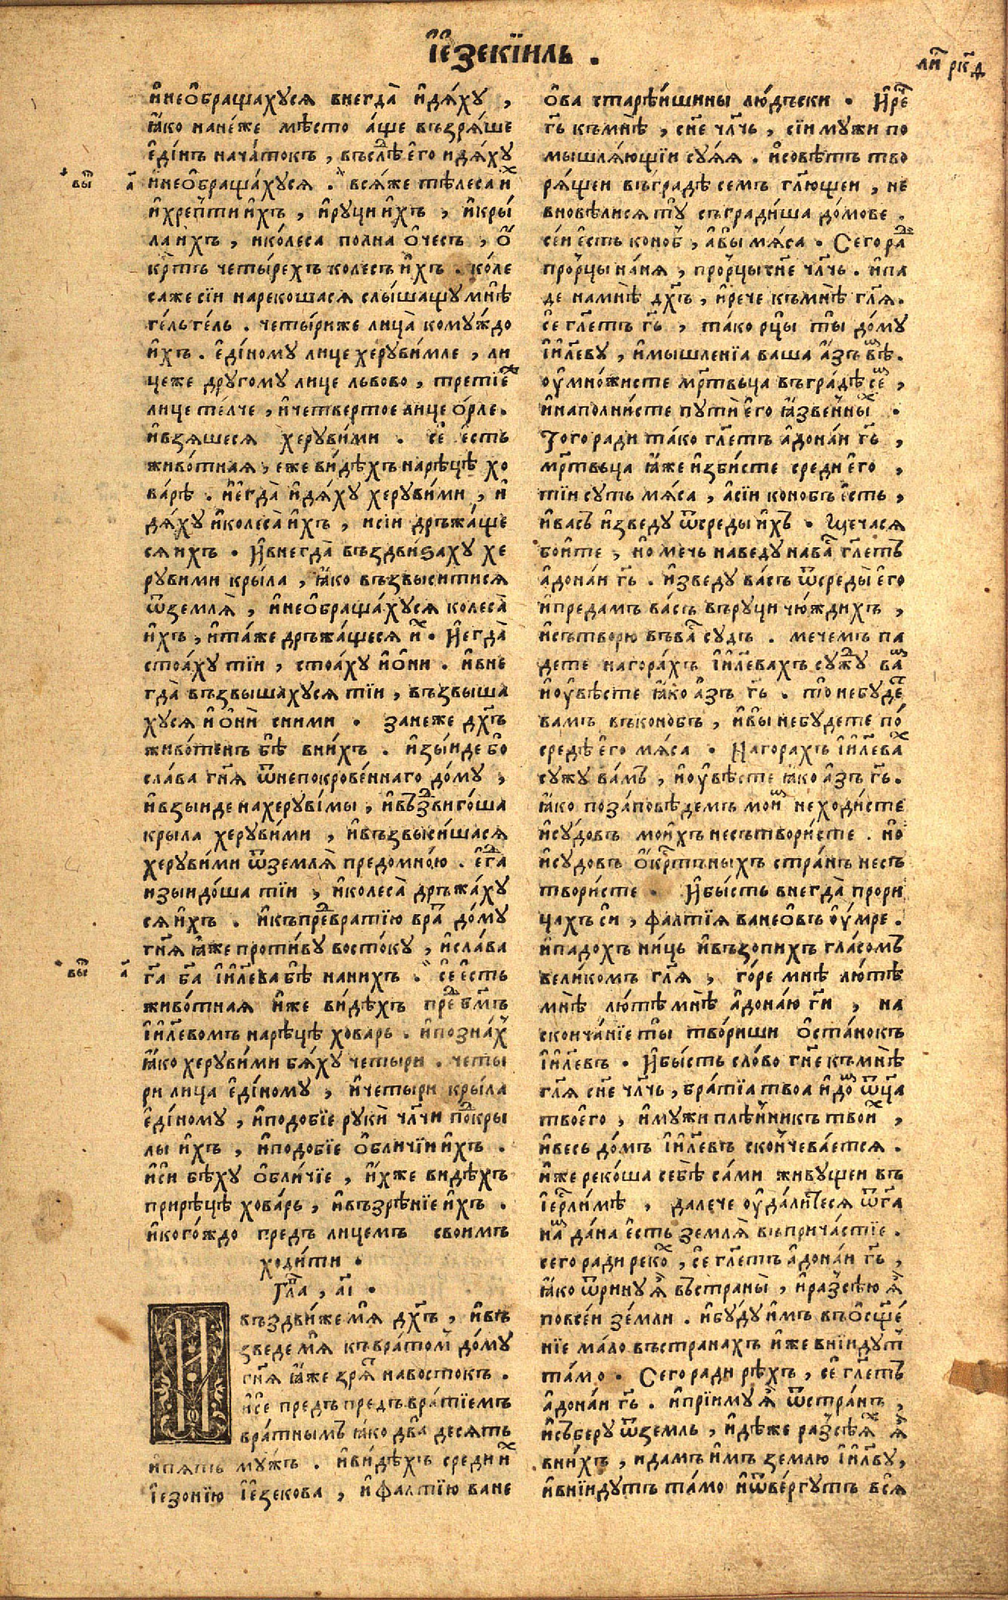 І҆е҆зекїиль .
ли рк҃д
и҆необраща́хуся внегда̀ и҆дѧ́ху ,
ꙗ҆ко нане́же мѣ́сто а́ще възрѧ́ше
е҆ди́нъ нача́токъ , въслѣ е҆го идѧ́ху
и҆необраща́хуся . всѧ́же тѣлеса и҆х
и҆хрепти и҆хъ , и҆руци и҆хъ , и҆кры́
ла и҆хъ , иколеса полна о҆чесъ , о҆
кртъ четы́рехъ колесъ и҆хъ . ко́ле
саже сїи нарекошася слы́шащу мнѣ̀
ге́ль ге́ль . четы́риже лица̀ кому́ждо
и҆хъ . е҆ди́ному лице херуви́мле , ли
це́же другому лице львово , третїеж
лице те́лче , и҆четвертое лице о҆рле .
и҆взяшеся херуви́ми . се҆ е҆сть
живо́тная , еже ви́дѣхъ нарѣцѣ хо
ва́рѣ . и҆е҆гда̀ и҆дѧ́ху херуви́ми , и҆
дѧ́ху и҆колеса̀ и҆хъ , исїи дръжа́ще
ся и҆хъ . И҆внегда̀ въздвиꙁаху хе
рувими кры́ла , ꙗ҆ко възвыситися
ѿземлѧ̀ , и҆необраща́хуся колеса̀
и҆хъ , ита́же дръжа́щеся и҆х . И҆егда̀
стоа́ху тїи , стоа́ху и҆о҆ни . и҆вне
гда̀ възвышахуся тїи , възвыша
хуся и҆ о҆нѝ сними . занеже дх҃ъ
живо́тенъ бѣ̀ вни́хъ . и҆зы́иде бо
сла́ва гн҃я ѿнепокрове́ннаго до́му ,
и҆взыиде нахеруви́мы , и҆въздвиго́ша
крыла херуви́ми , и҆възвысишася
херуви́ми ѿземлѧ̀ предомно́ю . е҆гда
изыидо́ша тїи , и҆колеса̀ дръжа́ху
ся и҆хъ . и҆къпредвратїю вра до́му
гн҃я ꙗ҆же проти́ву восто́ку , и҆сла́ва
га҃ ба҃ І҆и҆л҃ева бѣ̀ нанихъ . се҆ е҆сть
живо́тная и҆же ви́дѣхъ пре бг҃мъ
І҆и҆л҃евомъ нарѣцѣ ховарь . и҆позна́х
ꙗ҆ко херуви́ми бѧ́ху четыри . четы
ри лица е҆ди́ному , и҆четыри кры́ла
е҆ди́ному , и҆подобїе руки̇ чл҃чи покры
лы и҆хъ , и҆подобїе о҆бличїи и҆хъ .
и҆си бѣ́ху о҆бли́чїе , и҆хже видѣхъ
прирѣ́цѣ хова́рь , и҆възрѣ́нїе и҆хъ .
и҆кого́ждо предъ лицемъ своимъ
ходи́ти .
Гла , а҃і .
И въздви́же мѧ дх҃ъ , и҆въ
зведе мѧ къврато́м до́му
гн҃я ꙗ҆же зрѧ навостокъ .
и҆се предъ предъвратїемъ
вра́тнымъ ꙗ҆ко два десять
ипять мужъ . и҆ви́дѣхъ среди и҆х
І҆езонїю І҆езекова , и҆ фалтїю ване
о҆ва старѣ́ишины лю́дьски . И҆рече
гь҃ къмнѣ , сн҃е чл҃чь , сїи мужи по
мышлѧ́ющїи су́ѧя . и҆совѣтъ тво
рѧ́щеи въградѣ семъ гл҃ющеи , не
вновѣ́лися ту съгради́ша до́мове .
се́и е҆сть коноб , а҆вы́ мѧ́са . Сего ра
прор҃цы наня , прор҃цы сн҃е чл҃чь . и҆па
де намнѣ̀ дх҃ъ , и҆рече къмнѣ гл҃я .
се҆ гл҃етъ гь҃ , та́ко рцы ты до́му
І҆и҆л҃еву , и҆мышленїа ваша а҆зъ вѣ .
оу҆мно́жисте мр҃твьца въградѣ се ,
и҆наполни́сте пути̇ е҆го ꙗ҆звены .
Того ради та́ко гл҃етъ а҆дона́и гь҃ ,
мр҃твьца ꙗ҆же и҆зби́сте среди е҆го ,
тїи суть мѧ́са , а҆сїи конобъ е҆сть ,
и҆васъ и҆зведу ѿсреды и҆хъ . Ще́чася
бои́те , но мечь наведу нава гл҃етъ
а҆дона́и гь҃ . и҆зведу васъ ѿсреды̀ е҆го
и҆предамъ васъ въруци чю́ждихъ ,
и҆сътворю въва судъ . мечемъ па
дете нагора́хъ І҆и҆л҃евахъ сужу ва
и҆оу҆вѣ́сте ꙗ҆ко а҆зъ гь҃ . то небуде
вамъ въконобъ , и҆вы небудете по́
средѣ е҆го мѧ́са . Нагорахъ І҆и҆л҃евах
сужу вамъ , и҆оу҆вѣ́сте ꙗ҆ко а҆зъ гь҃ .
ꙗ҆ко поза́повѣдемъ мои не ходи́сте
и҆су́довъ мои́хъ несътвори́сте . но
и҆судовъ о҆кр҃тъныхъ стра́нъ несъ
твори́сте . И҆бы́сть внегда̀ прори
цахъ си , фалтїя ванео҆въ оу҆мре .
и҆падохъ ни́ць и҆възопихъ гла́сомъ
вели́комъ гл҃я , го́ре мнѣ лю́тѣ
мнѣ лю́тѣ мнѣ а҆дона́ю ги҃ , на
сконча́нїе ты твори́ши о҆ста́нокъ
І҆и҆л҃евъ . И҆бы́сть сло́во гн҃е къмнѣ
гл҃я сн҃е чл҃чь , бра́тїа твоа и҆до ѿца
твоего , и҆мужи плѣ́нникъ твои ,
и҆весь до́мъ І҆и҆л҃евъ сконьчева́ется .
и҆же рекоша себѣ са́ми живущеи въ
І҆ер҃ли́мѣ , далече оу҆дали́теся ѿга҃
на да́на е҆сть земля̀ въпричастїе .
сего ради реко , се҆ гл҃етъ а҆дона́и гь҃ ,
ꙗ҆ко ѿрину ѧ҆̀ въстраны̀ , и҆разсѣ́ю ѧ҆̀
повсе́и земли . и҆бу́ду и҆мъ въо҆сще́
нїе ма́ло въстранахъ и҆же внїидут
та́мо . Сего ради рѣхъ , се҆ гл҃етъ
а҆дона́и гь҃ . и҆прїиму ѧ҆̀ ѿстра́нъ ,
и҆съберу ѿземль , и҆дѣже разсѣѧ ѧ҆̀
вни́хъ , идамъ и҆мъ землю І҆и҆л҃ву ,
и҆внїидутъ та́мо и҆ѿве́ргутъ вся
вы а
вы а